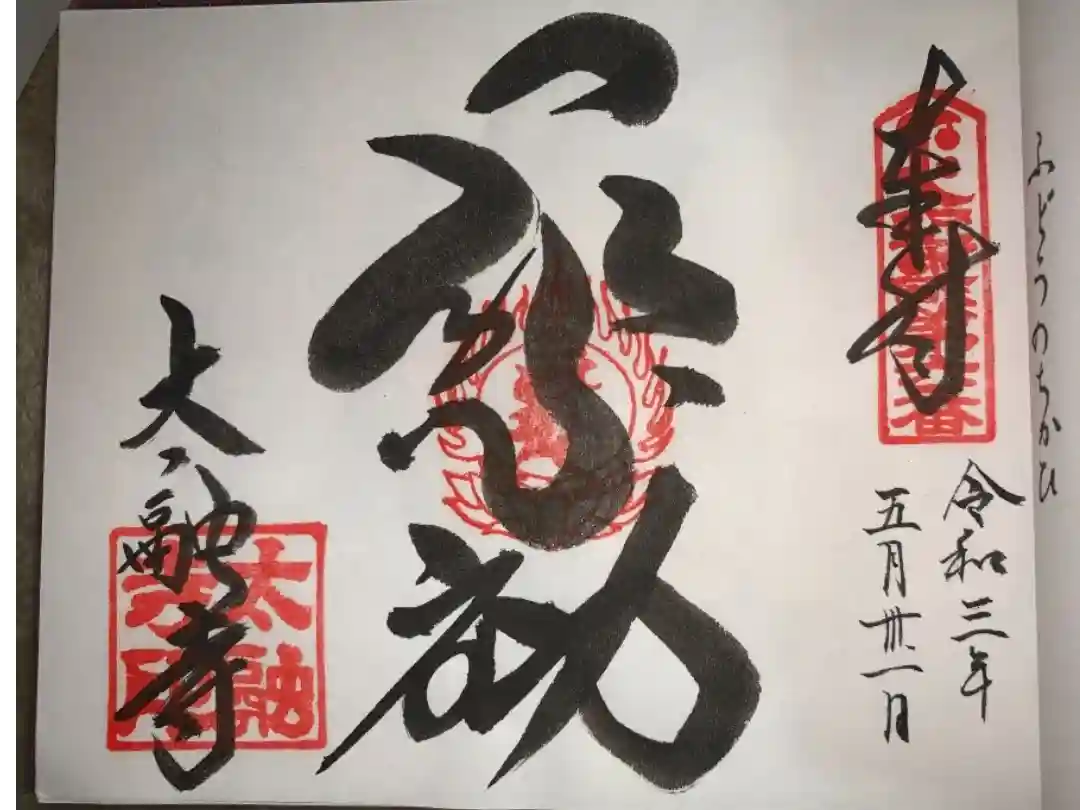 ふどうのちかひ
奉拝
令和三年
五月卅一日
不動
太融寺
太融寺印